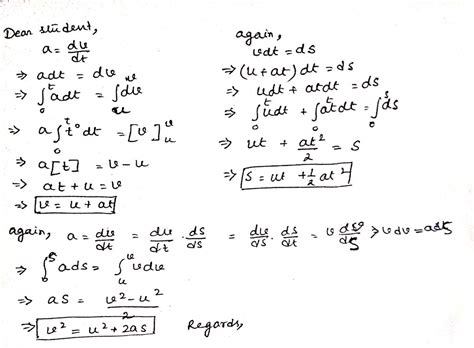 Dear student,
a = dv/dt
⇒ adt = dv
⇒ ∫₀ᵗ adt = ∫ᵤᵛ dv
⇒ a ∫₀ᵗ t⁰ dt = [v]ᵤᵛ
⇒ a[t] = v - u
⇒ at + u = v
⇒ v = u + at
again,
vdt = ds
⇒ (u + at) dt = ds
⇒ udt + atdt = ds
⇒ ∫₀ᵗ udt + ∫₀ᵗ atdt = ∫₀ˢ ds
⇒ ut + at²/2 = s
⇒ s = ut + 1/2 at²
again, a = dv/dt = dv/dt · ds/ds = dv/ds · ds/dt = v
⇒ vdv = ads
⇒ ∫₀ˢ ads = ∫ᵤᵛ vdv
⇒ as = v² - u²/2
⇒ v² = u² + 2as
Regards,